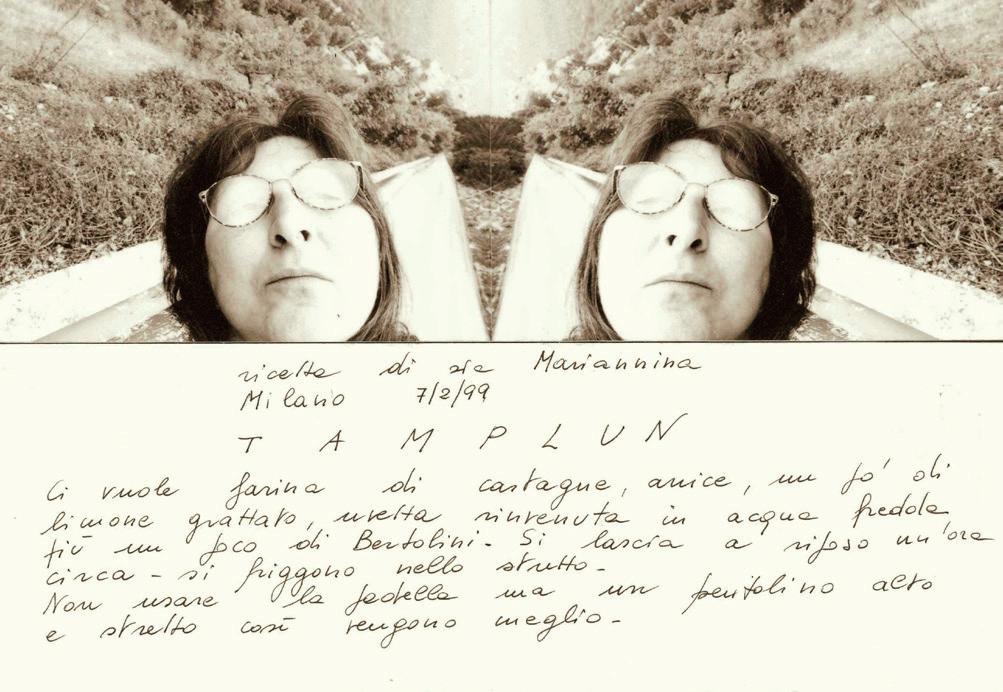 ricetta di zia Mariannina
Milano 7/2/99
TAMPLUN
Ci vuole farina di castagne, anice, un po' di
limone grattato, uvetta rinvenuta in acqua fredda
più un poco di Bertolini - Si lascia a riposo un'ora
circa - si friggono nello strutto -
Non usare la padella ma un pentolino alto
e stretto così vengono meglio -